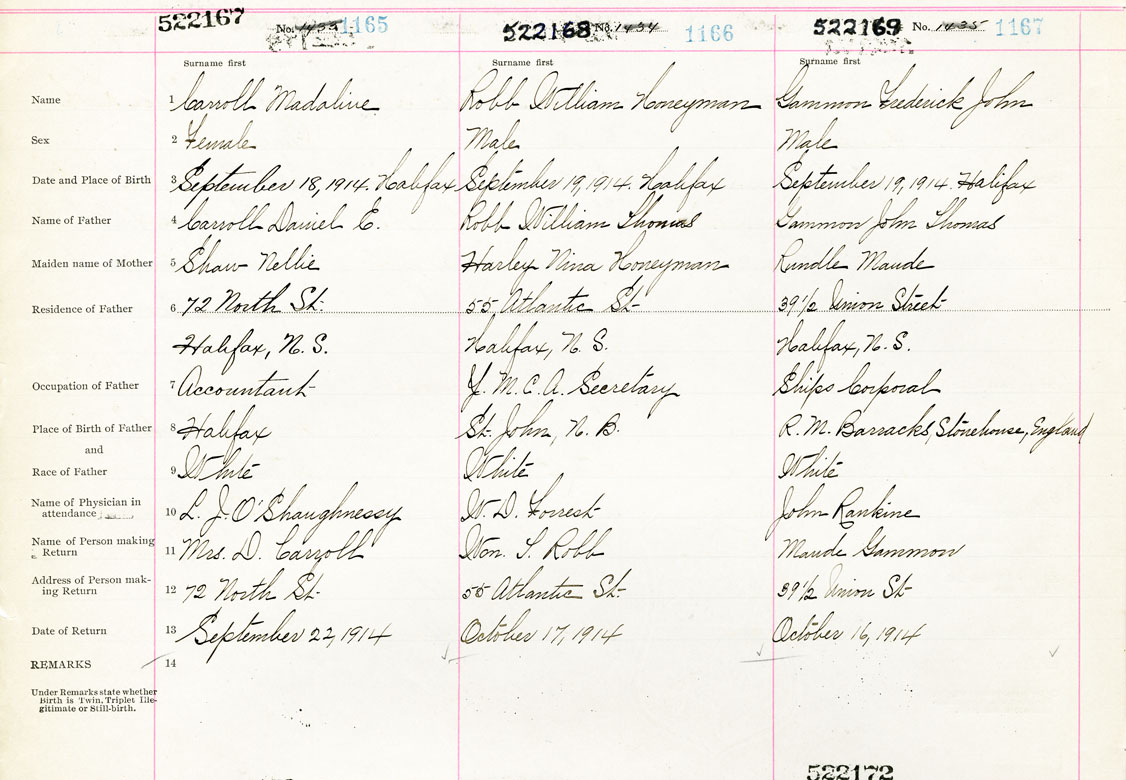 522167 No. 1165 522168 No. 1434 1166 522169 No. 1435 1167
Surname first Surname first Surname first
Name 1 Carroll Madaline Robb William Honeyman Gammon Frederick John
Sex 2 Female Male Male
Date and Place of Birth 3 September 18, 1914. Halifax September 19, 1914. Halifax September 19, 1914. Halifax
Name of Father 4 Carroll Daniel E. Robb William Thomas Gammon John Thomas
Maiden name of Mother 5 Shaw Nellie Harley Nina Honeyman Rundle Maude
Residence of Father 6 72 North St. 55 Atlantic St 39 1/2 Union Street
Halifax, N.S. Halifax, N.S. Halifax, N.S.
Occupation of Father 7 Accountant Y.M.C.A. Secretary Ships Corporal
Place of Birth of Father 8 Halifax St. John, N.B. R.M. Barracks, Stonehouse, England
and
Race of Father 9 White White White
Name of Physician in
attendance 10 L. J. O'Shaughnessy W. D. Forrest John Rankine
Name of Person making
Return 11 Mrs. D. Carroll Wm. T. Robb Maude Gammon
Address of Person mak-
ing Return 12 72 North St 55 Atlantic St 39 1/2 Union St
Date of Return 13 September 22, 1914 October 17, 1914 October 16, 1914
REMARKS 14
Under Remarks state whether
Birth is Twin, Triplet Ille-
gitimate or Still-birth.
522172